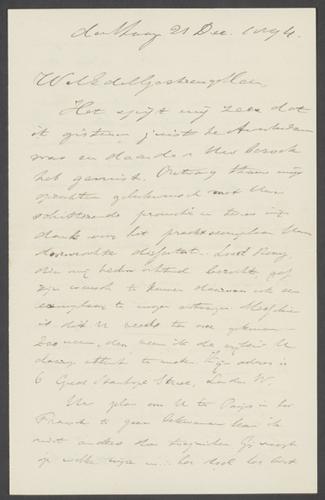 den Haag 21 Dec. 1894.
WelEdelGestrenge Heer,
Het spijt mij zeer dat
ik gisteren juist te Amsterdam
was en daardoor Uw bezoek
heb gemist. Ontvang thans mijn
oprechten gelukwensch met Uwe
schitterende promotie en tevens mijn
dank voor het prachtexemplaar Uwer
dissertatie. Lord
die mij heden bericht, gaf
zijn wensch te kennen daarvan ook een
exemplaar te mogen ontvangen. Misschien
is dit U reeds
zoo neen, dan neem ik de vrijheid U
daarop attent te maken. Zijn adres is
6 Great Stanhope Street, London W.
Uw plan om U te Parijs in het
Fransch te gaan bekwamen kan ik
niet anders dan toejuichen. Gij moogt
op welke wijze het toch het best